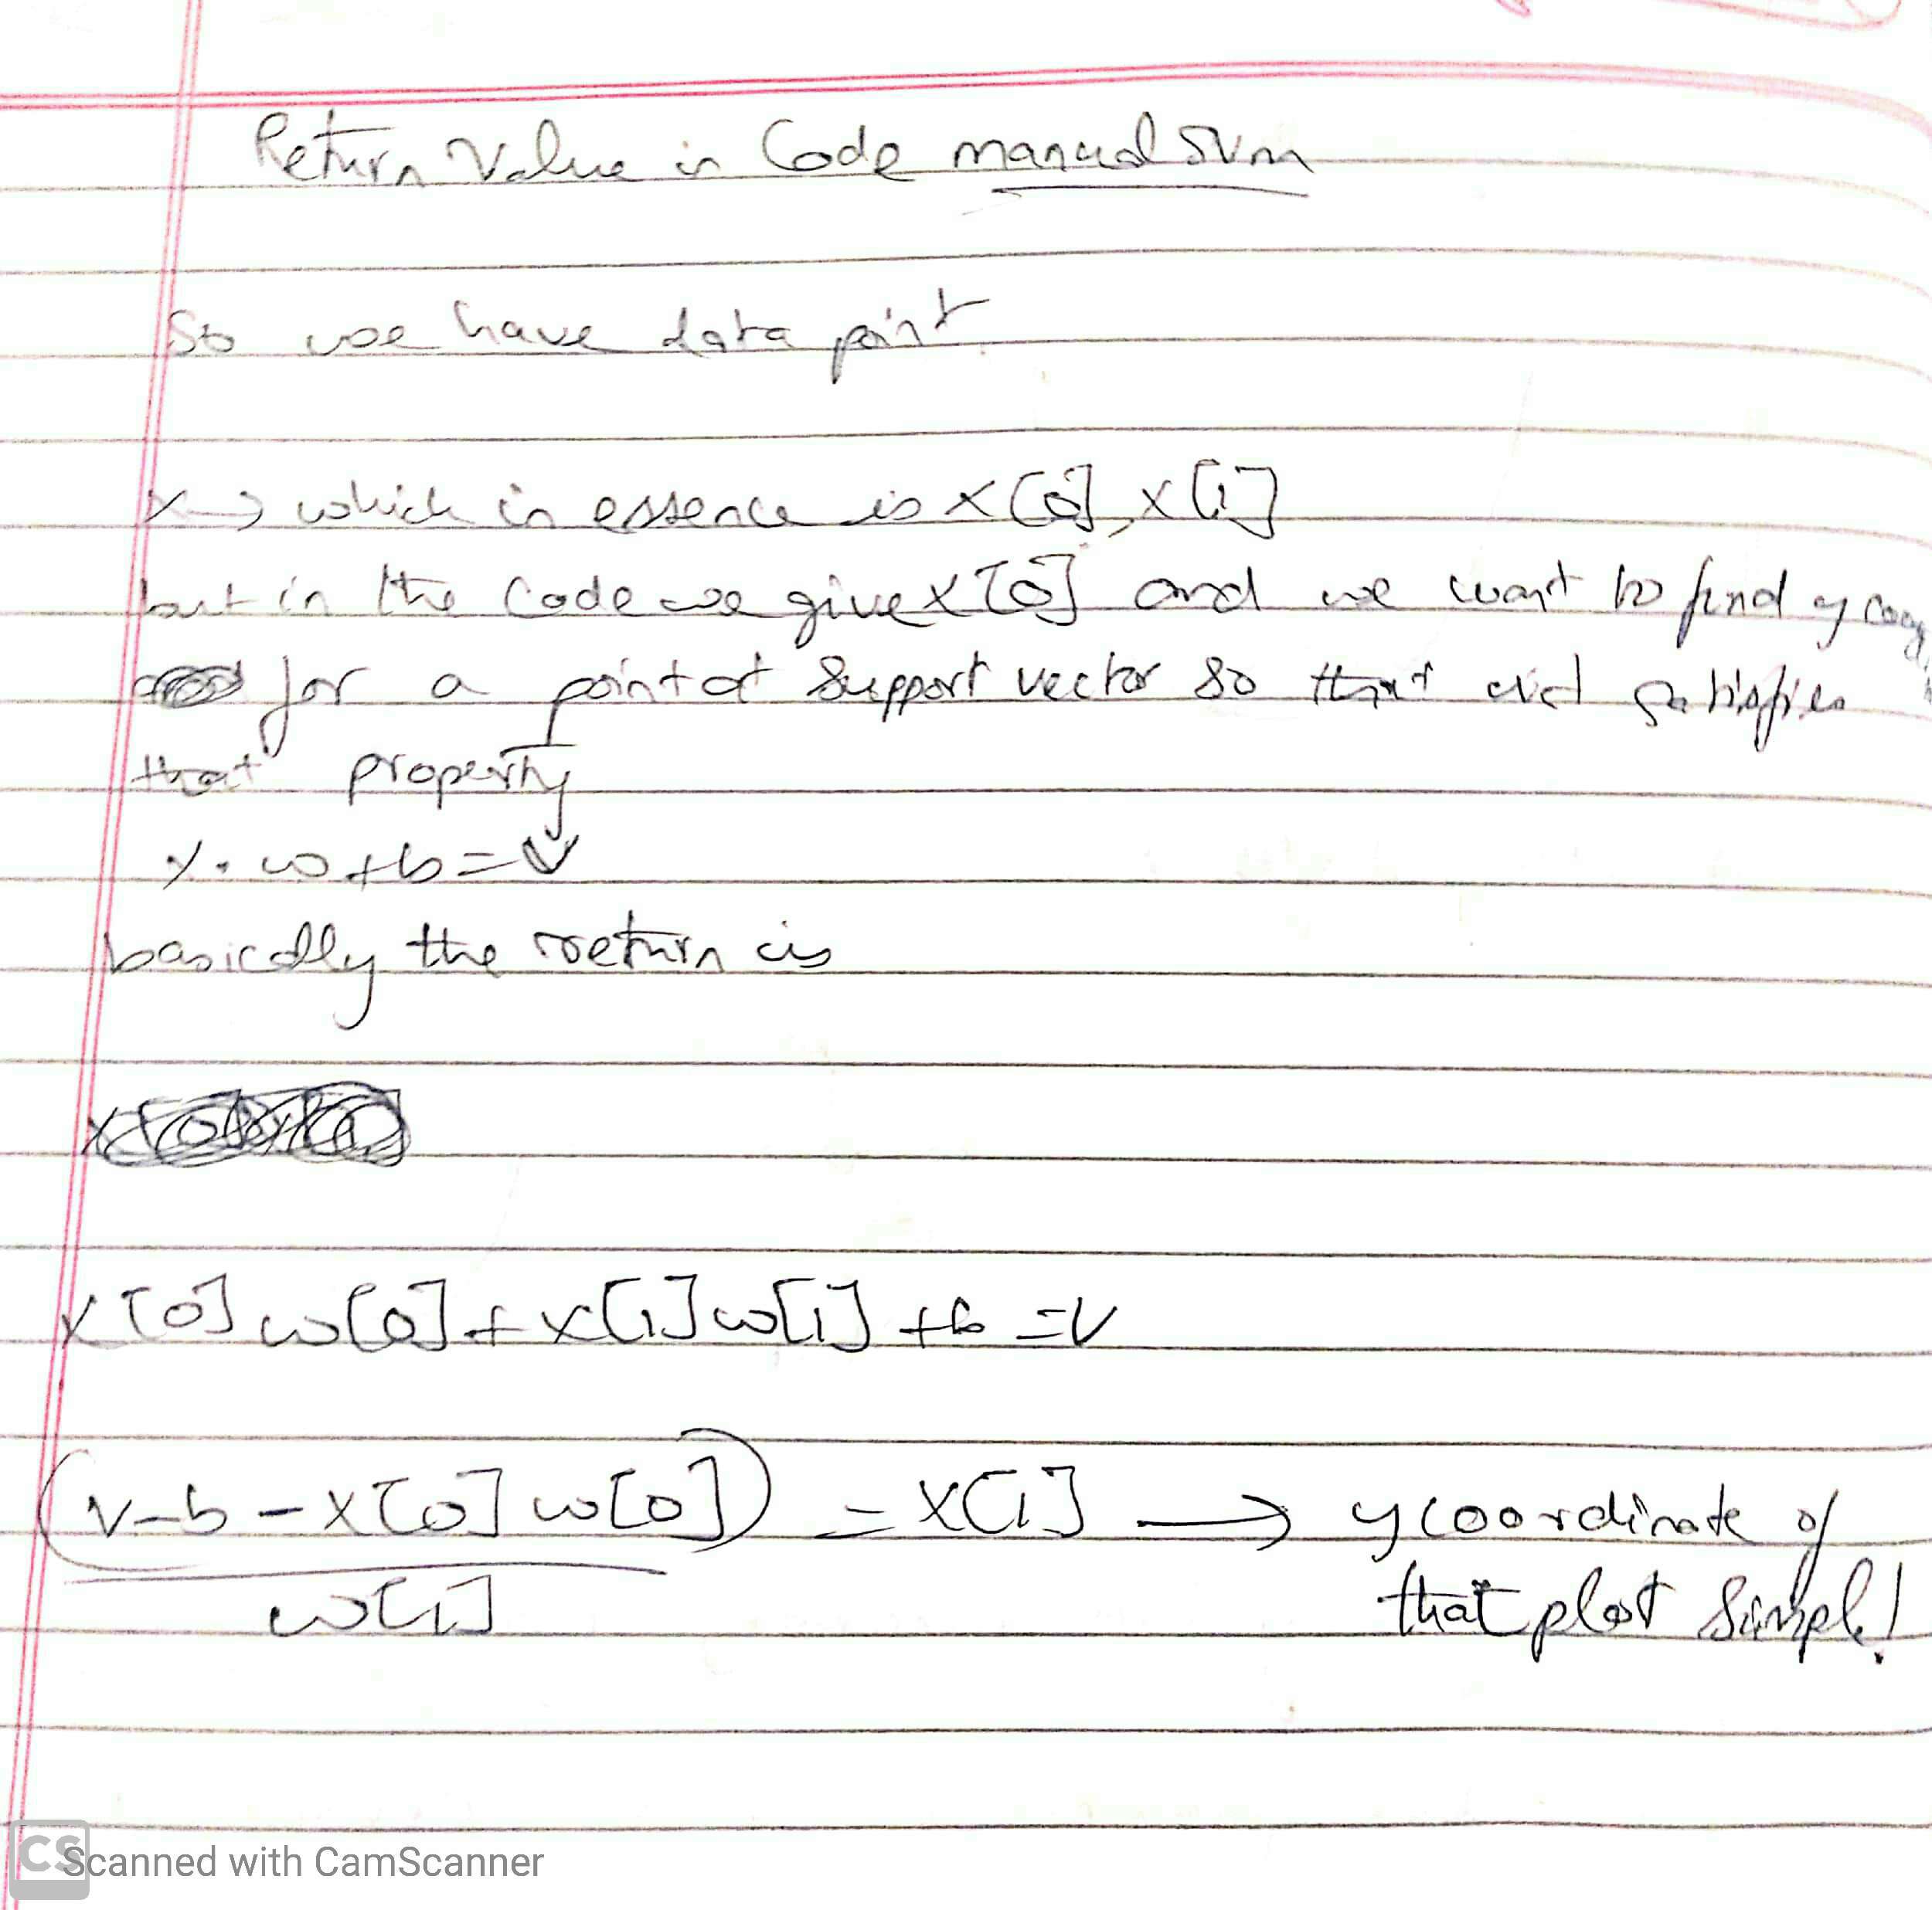 Return Value in Code manual SVM
So we have data point
x → which in essence is x[0], x[1]
but in the code we give x[0] and we want to find y
for a point of support vector so that satisfies
that property
x.w+b=v
basically the return is
x[0]w[0]+x[1]w[1]+b=v
(v-b-x[0]w[0]) = x[1] → y coordinate of
w[1] that plot simple!
CS Scanned with CamScanner